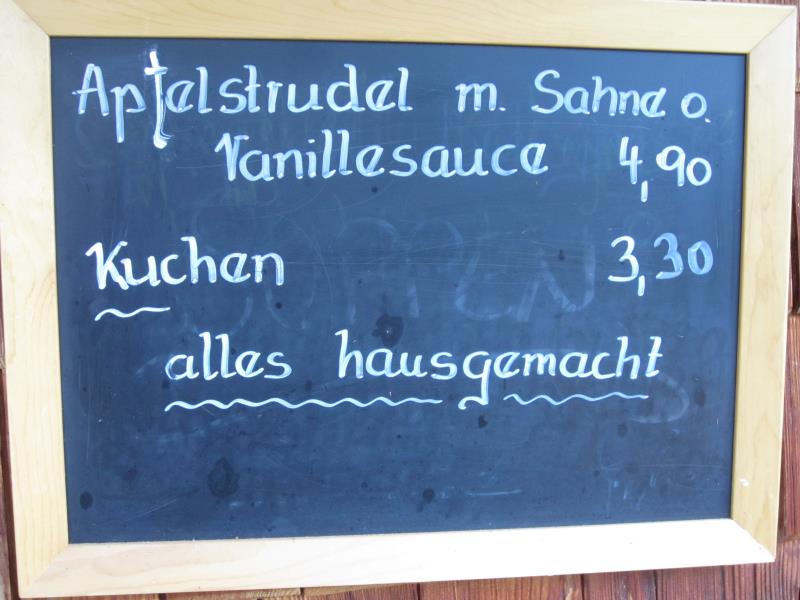 Apfelstrudel m. Sahne o.
Vanillesauce 4,90
Kuchen 3,30
alles hausgemacht